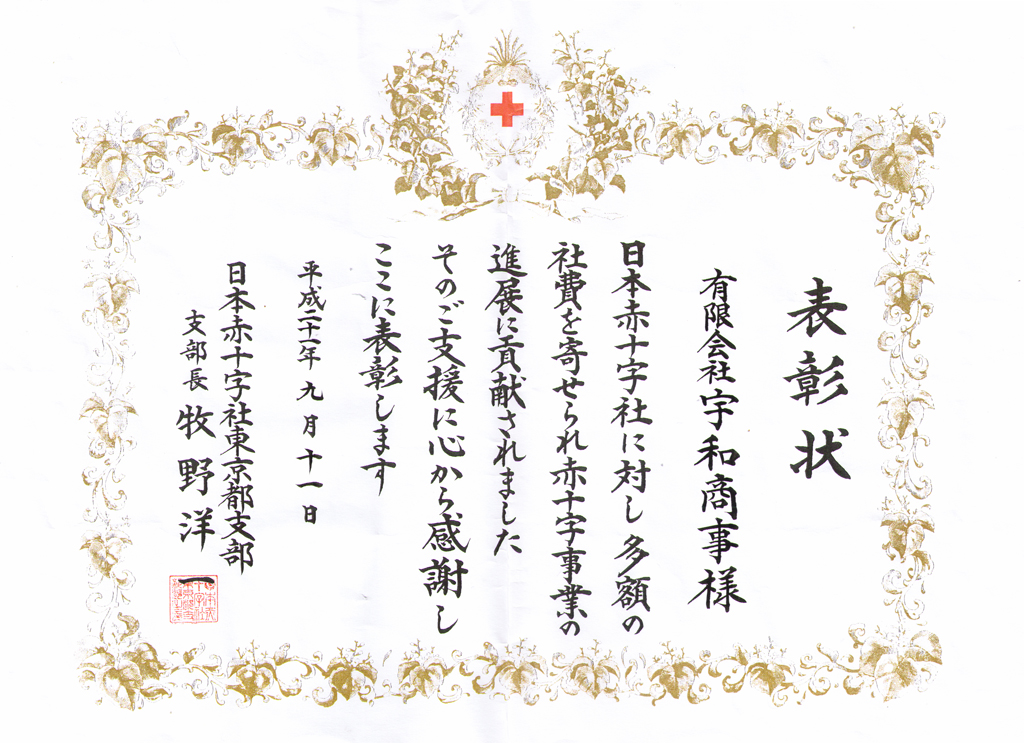 表彰状
有限会社宇和商事様
日本赤十字社に対し多額の
社費を寄せられ赤十字事業の
進展に貢献されました
そのご支援に心から感謝し
ここに表彰します
平成二十一年九月十一日
日本赤十字社東京都支部
支部長 牧野洋一